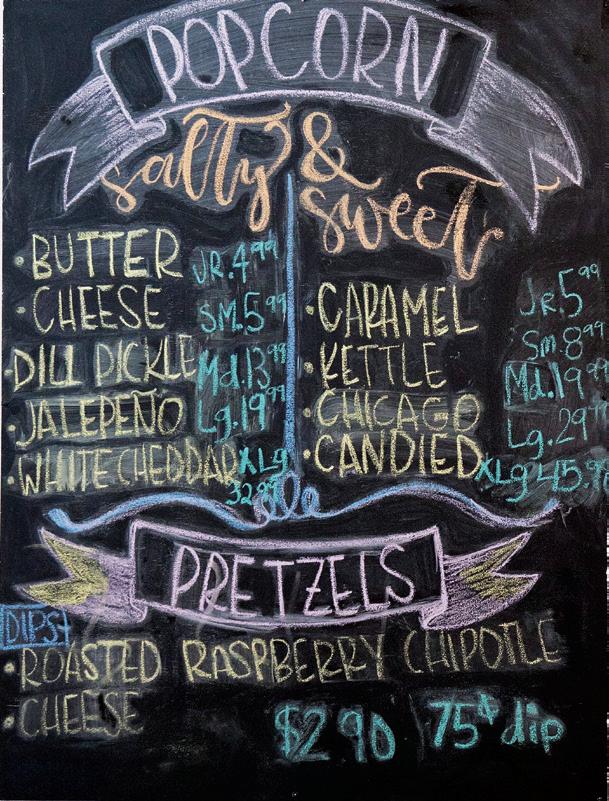 POPCORN
salty & sweet
• BUTTER JR. 4.99
• CHEESE SM. 5.99
• DILL PICKLE Md. 13.99
• JALEPEÑO Lg. 19.99
• WHITE CHEDDAR XLg 32.99
• CARAMEL Jr. 5.99
• KETTLE Sm. 8.99
• CHICAGO Md. 19.99
• CANDIED Lg. 29.99
XLg 45.99
PRETZELS
DIPS
• ROASTED RASPBERRY CHIPOTLE
• CHEESE
$2.90 75¢ dip